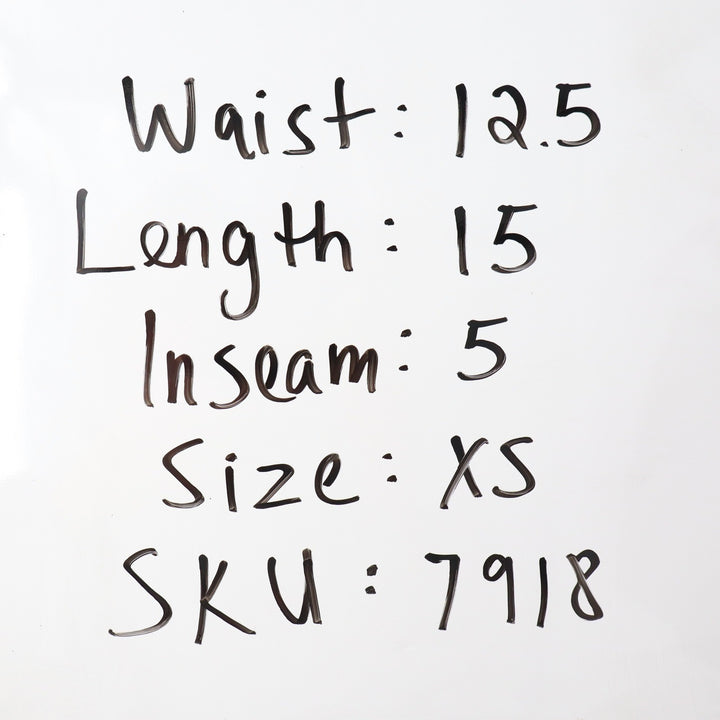 Waist: 12.5
Length: 15
Inseam: 5
Size: XS
SKU: 7918